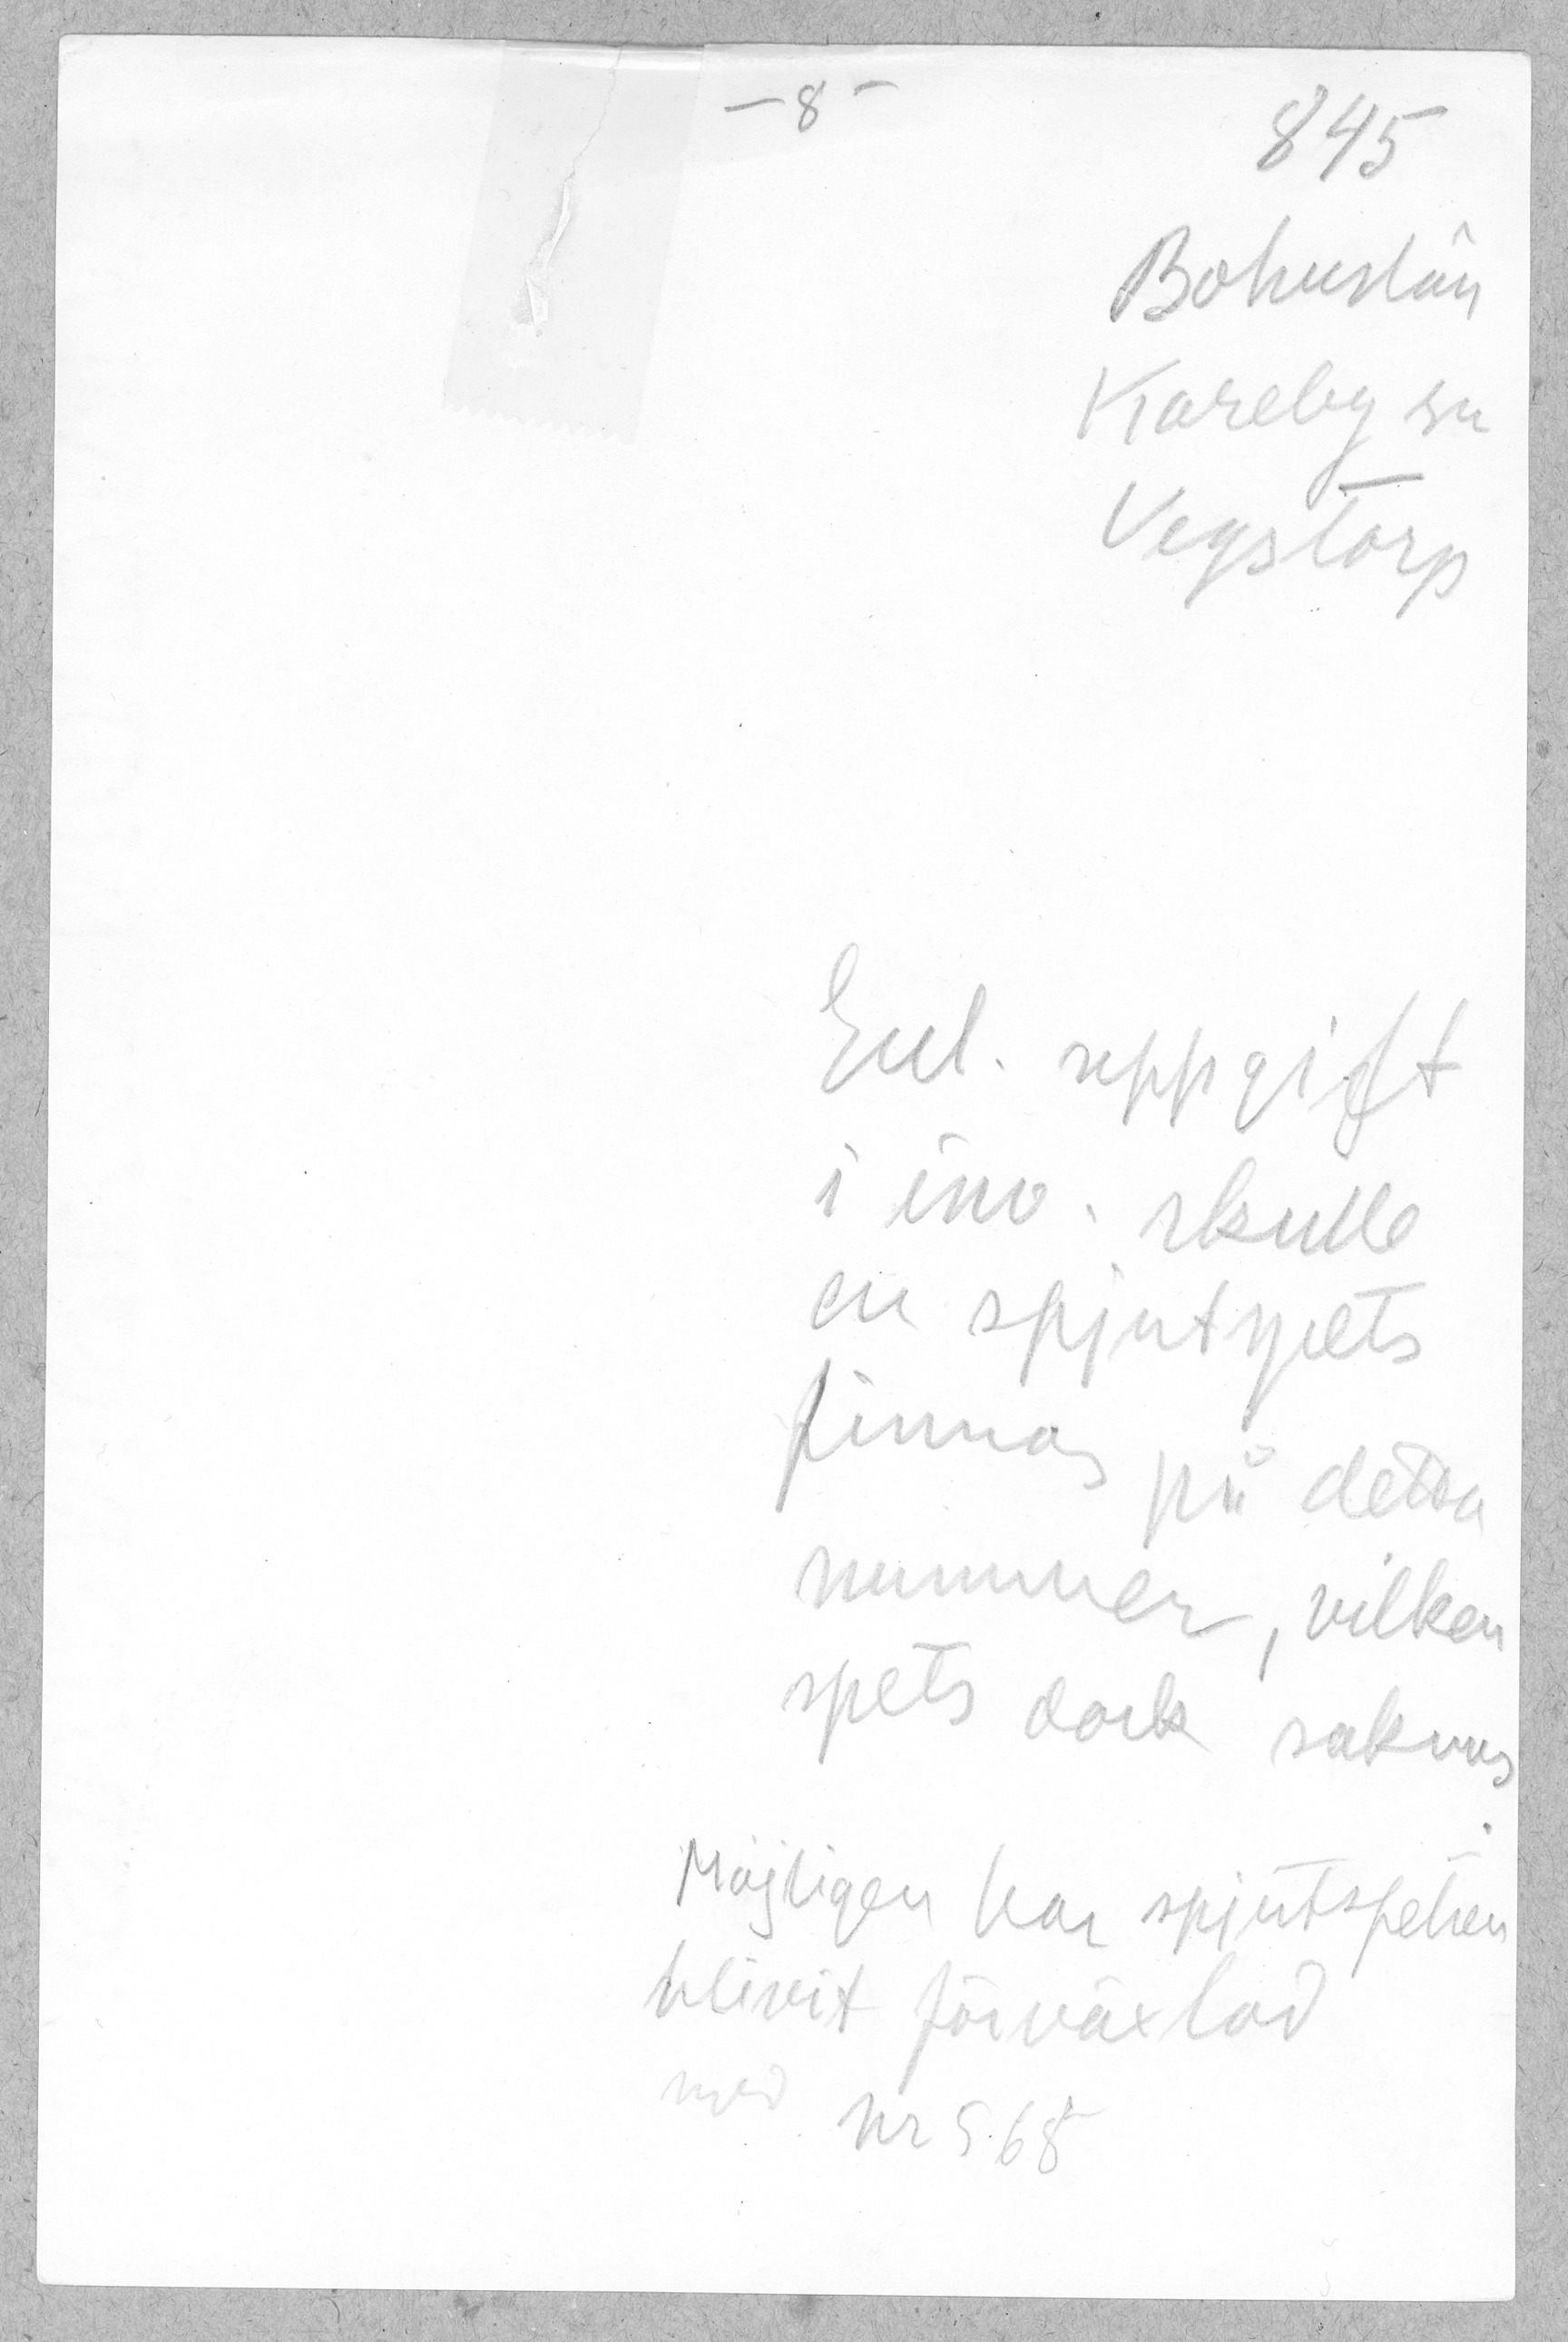 -8-
845
Bohuslän
Kareby sn
Vegstorp
Enl. uppgift
i inv. skulle
en spjutspets
finnas på detta
nummer, vilken
spets dock saknas
.
Möjligen har spjutspetsen
blivit förväxlad
med nr 568